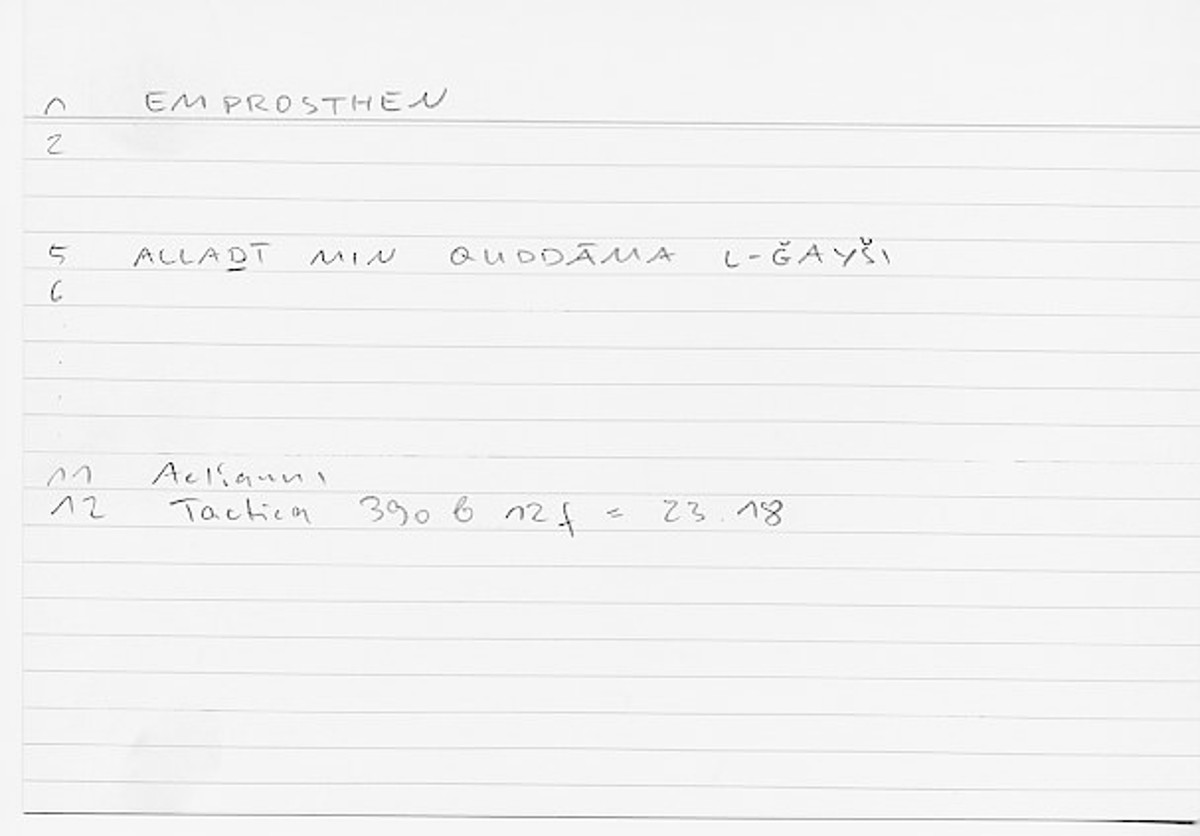 1 EMPROSTHEN
2
5 ALLAḎĪ MIN QUDDĀMA L-ǦAYŠI
6
.
.
.
.
11 Aelianus
12 Tactica 390 b 12 f = 23.18